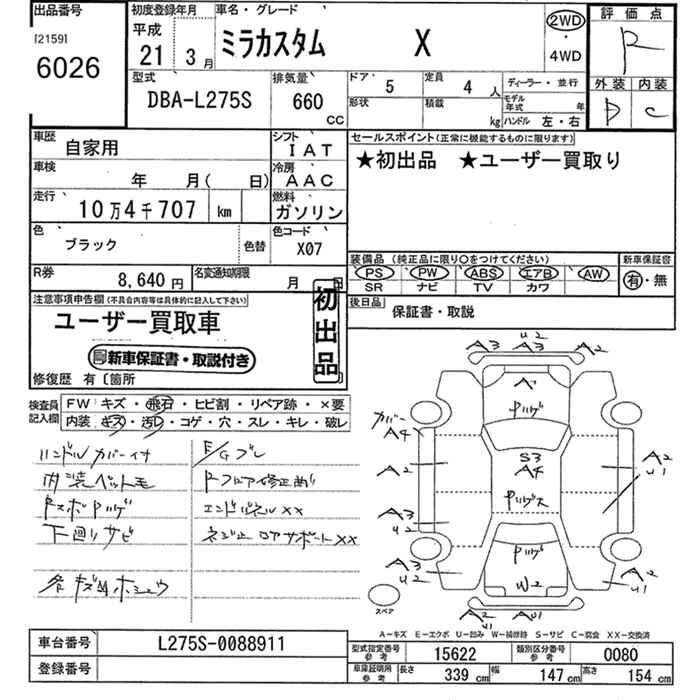 出品番号
[2159]
6026
初度登録年月
平成
21 年 3 月
車名・グレード
ミラカスタム X
2WD
・
4WD
評価点
R
外装 内装
D C
型式
DBA-L275S
排気量
660
CC
ドア 5
定員 4 人
形状
積載 kg
ディーラー・並行
モデル年式 年
ハンドル 左・右
車歴
自家用
シフト
IAT
車検
年 月( 日)
冷房
AAC
走行
10万4千707 km
燃料
ガソリン
色
ブラック
色替
色コード
X07
R券
8,640円
名変通知期限
月 日
セールスポイント(正常に機能するものに限ります)
★初出品 ★ユーザー買取り
装備品(純正品に限り○をつけてください)
PS PW ABS エアB AW
SR ナビ TV カワ
新車保証書
有・無
後日品
保証書・取説
注意事項申告欄(不具合内容等は具体的に記入して下さい)
ユーザー買取車
新車保証書・取説付き
初出品
修復歴 有〔箇所
検査員記入欄
FW キズ・飛石・ヒビ割・リペア跡・×要
内装 キズ・汚レ・コゲ・穴・スレ・キレ・破レ
ハンドルカバー付
内装ペット毛
下回りサビ
E/Gブレ
Rフロア修正曲
エンドパネル××
U2
A3 A3 A2
カバー
A4
A2
A3
U2
A3
U2
S3
A4
W2
A2
U1
A2
U2
A2
U2
AU1
スペア
A−キズ E−エクボ U−凹み W−補修跡 S−サビ C−腐食 XX−交換済
車台番号
L275S-0088911
登録番号
型式指定番号
参考
15622
類別区分番号
参考
0080
車庫証明用
参考
長さ 339 cm
幅 147 cm
高さ 154 cm